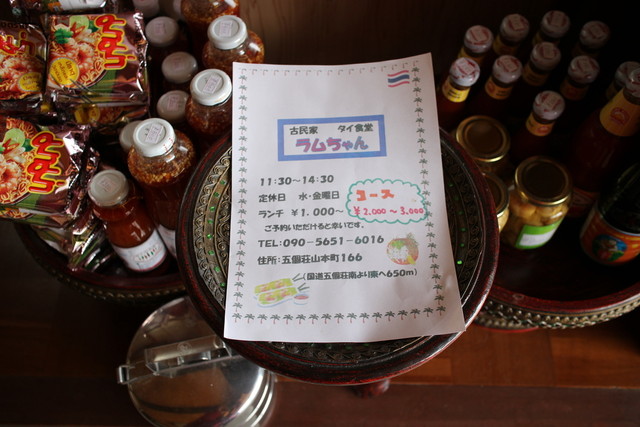 古民家 タイ食堂
ラムちゃん
11:30~14:30
定休日 水・金曜日
ランチ ￥1.000~
コース
￥2.000~3.000
ご予約いただけると幸いです。
TEL:090-5651-6016
住所:五個荘山本町166
(国道五個荘南より南へ650m)